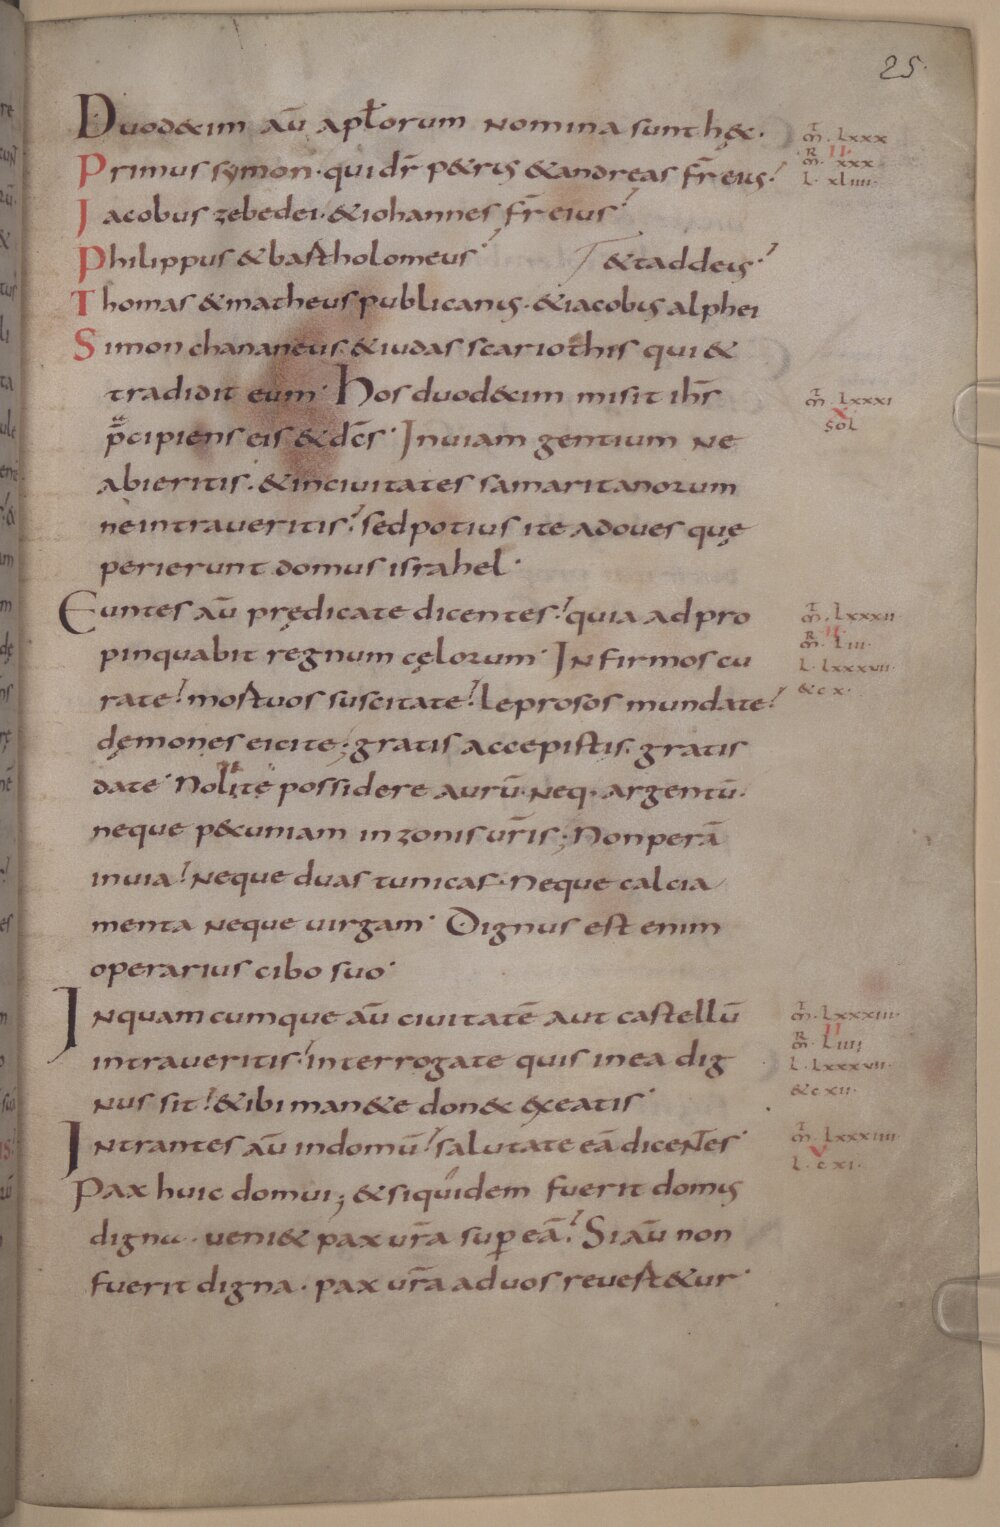 25.
Duodecim aū apłorum nomina sunt hęc.
Primus symon. qui dr̄ petrus &andreas fr̄ eius.
Iacobus zebedei. &iohannes fr̄ eius
Philippus &bartholomeus &taddeus.
Thomas &matheus publicanus. &iacobus alphei
Simon chananeus. &iudas scariothis qui &
tradidit eum. Hos duodecim misit ihs̄
p̄cipiens eis &dc̄s. In uiam gentium ne
abieritis. &in ciuitates samaritanorum
ne intraueritis. sed potius ite ad oues quę
perierunt domus israhel.
Euntes aū prędicate dicentes. quia adpro
pinquabit regnum cęlorum. Infirmos cu
rate. mortuos suscitate. leprosos mundate.
dęmones eicite; gratis accepistis. gratis
date. Nolite possidere aurū. neq. argentū.
neque pecuniam in zonis ur̄is; Non perā
in uia. neque duas tunicas. neque calcia
menta neque uirgam. Dignus est enim
operarius cibo suo.
In quamcumque aū ciuitatē aut castellū
intraueritis. interrogate quis in ea dig
nus sit. &ibi man&e donec exeatis.
Intrantes aū in domū. salutate eā dicentes.
Pax huic domui; &siquidem fuerit domus
digna. ueni& pax ur̄a sup eā. Si aū non
fuerit digna. pax ur̄a ad uos reuert&ur.
m̄. lxxx
II.
m̄. xxx
l. xliiii.
m̄. lxxxi
x
sol
m̄. lxxxii
II.
m̄. liii.
l. lxxxvii.
&cx.
m̄. lxxxiii.
II
m̄. liiii
l. lxxxvii.
&cxii.
m̄. lxxxiiii
v
l. cxi.